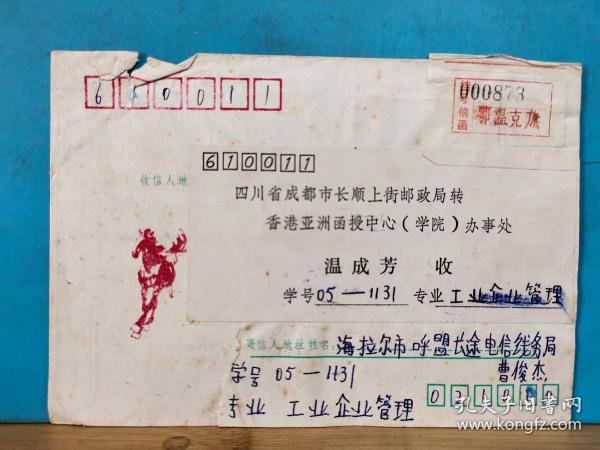 610011
挂号信函
000873
鄂温克旗
收信人地
610011
四川省成都市长顺上街邮政局转
香港亚洲函授中心(学院)办事处
温成芳 收
学号05—1131 专业 工业企业管理
寄信人地址姓名:海拉尔市呼盟长途电信线务局
曹俊杰
学号 05—1131
专业 工业企业管理
孔夫子旧书网
www.kongfz.com